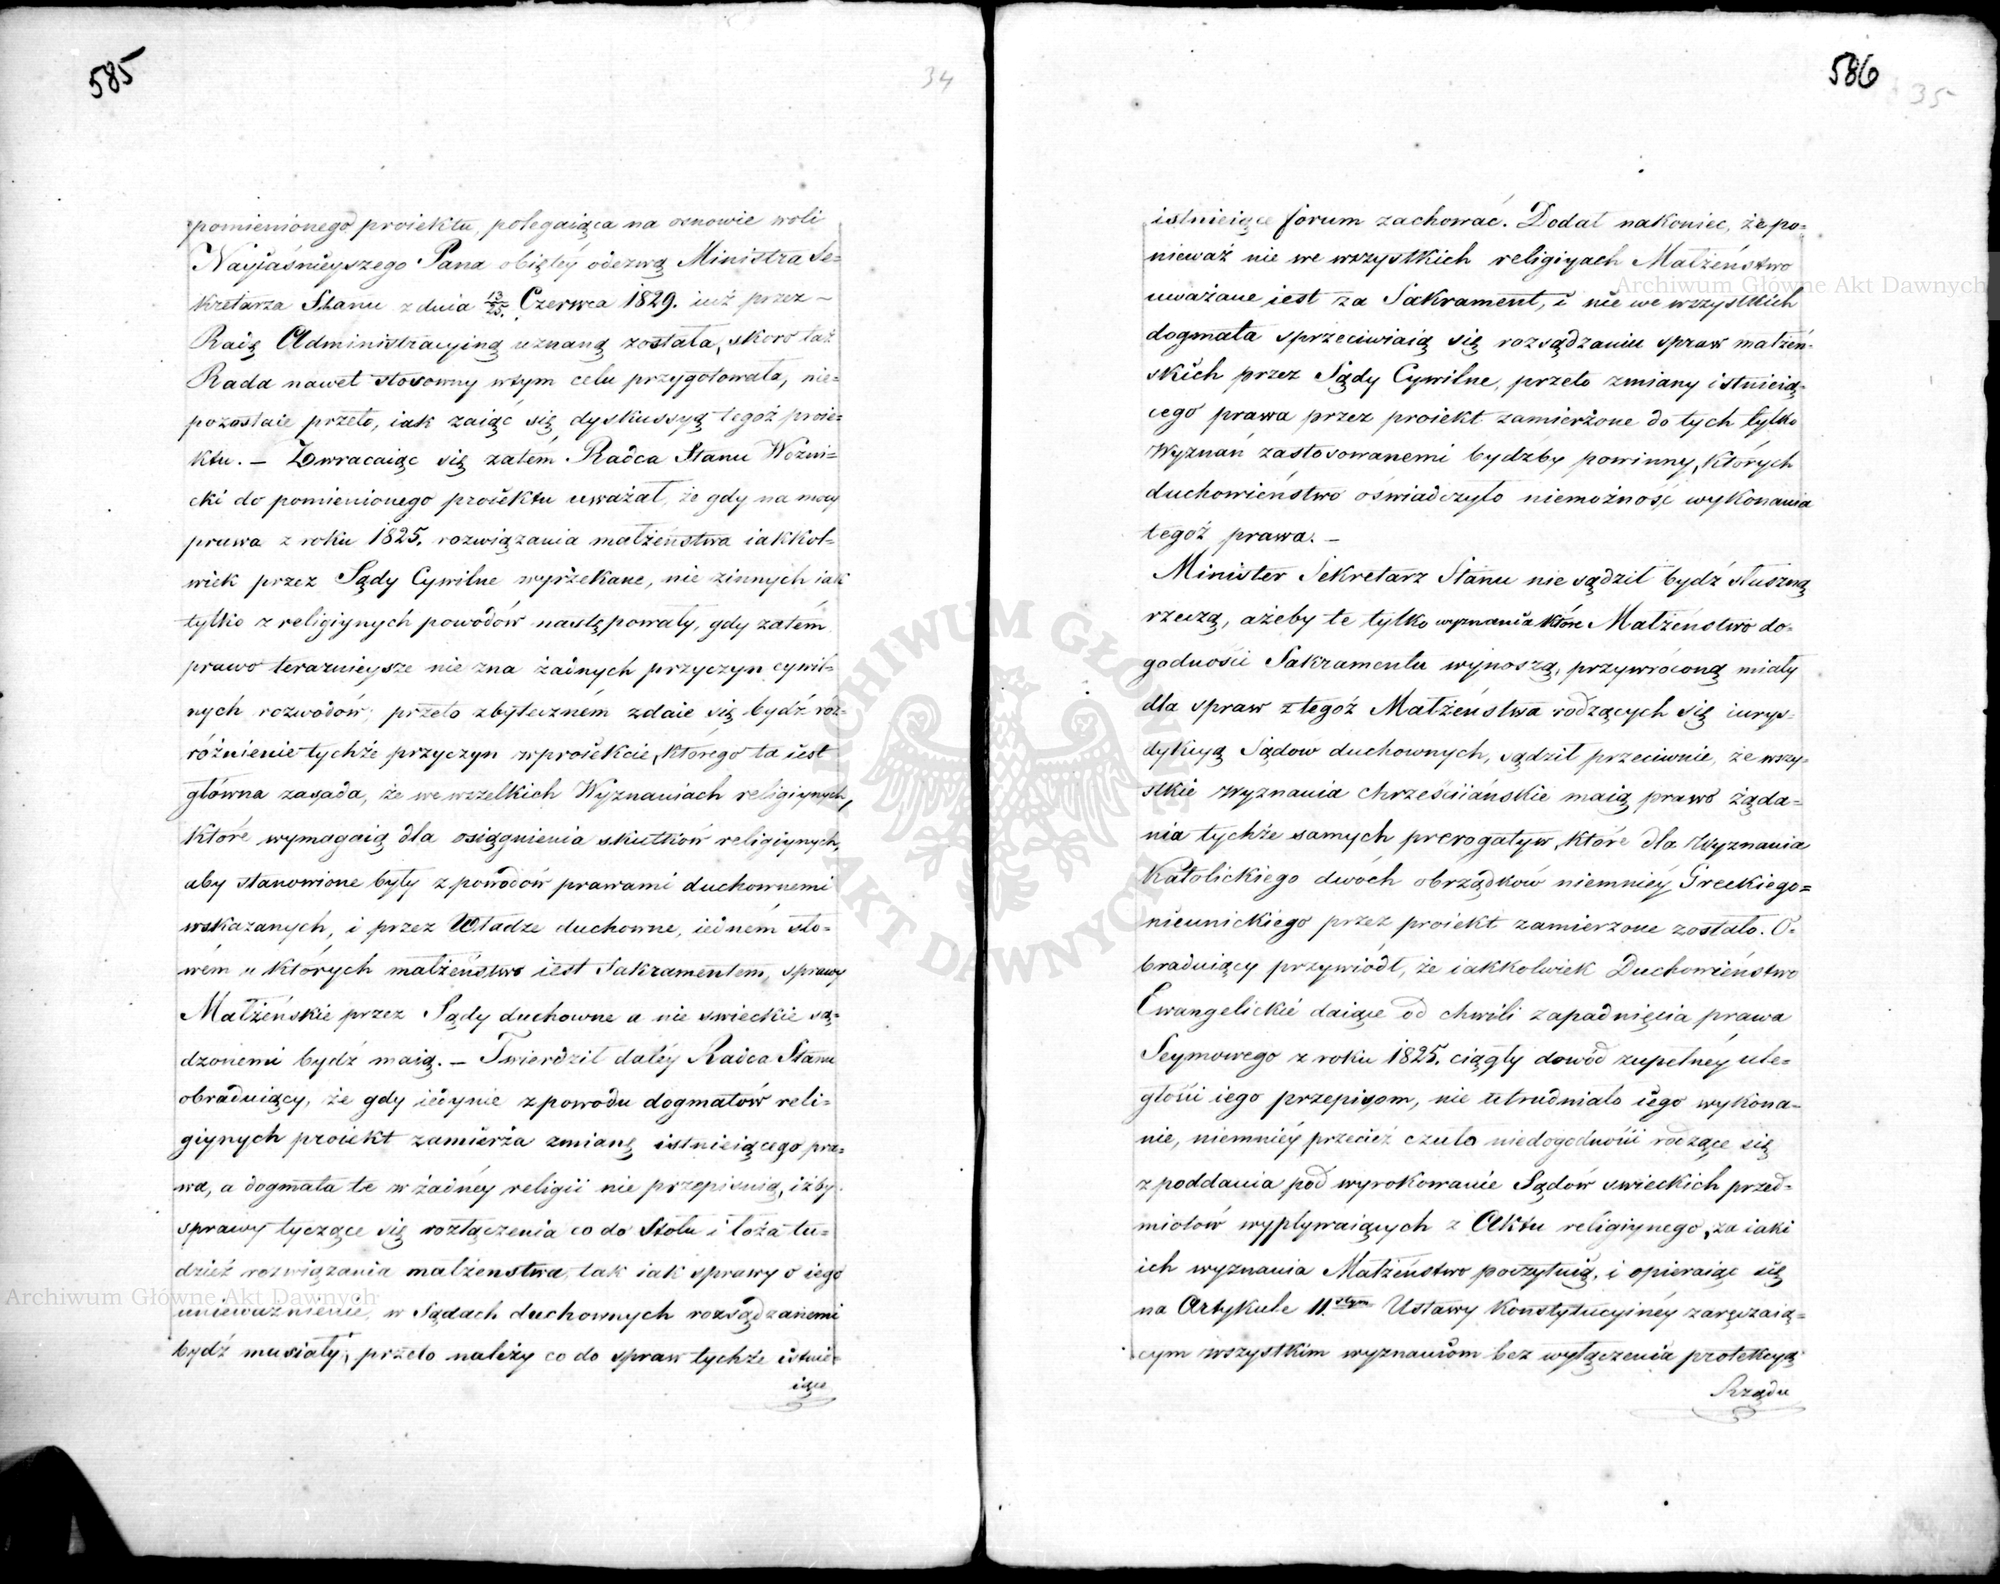 585
34
pomienionego proiektu, polegaiąca na osnowie woli
Nayiaśnieyszego Pana obiętéy odezwą Ministra Se=
kretarza Stanu z dnia 13/25. Czerwca 1829. iuż przez –
Radę Administracyiną uznaną została, skoro taż
Rada nawet stosowny w tym celu przygotowała, nie=
pozostaie przeto, iak zaiąć się dyskussyą tegoż proie=
ktu. – Zwracaiąc się zatém Radca Stanu Woźni=
cki do pomienionego proiektu uważał, że gdy na mocy
prawa z roku 1825. rozwiązania małżeństwa iakkol=
wiek przez Sądy Cywilne wyrżekane, nie z innych iak
tylko z religiynych powodów następowały, gdy zatém
prawo teraznieysze nie zna żadnych przyczyn cywil=
nych rozwodów; przeto zbyteczném zdaie się bydź roz=
różnienie tychże przyczyn w proiekcie, którego ta iest
główna zasada, że we wszelkich Wyznaniach religiynych,
które wymagaią dla osiągnienia skutków religiynych,
aby stanowione były z powodów prawami duchownemi
wskazanych, i przez Władze duchowne, iedném sło=
wém u których małżeństwo iest Sakramentem, sprawy
Małżeńskie przez Sądy duchowne a nie swieckie są=
dzonemi bydź maią. – Twierdził daléy Radca Stanu
obraduiący, że gdy iedynie z powodu dogmatów reli=
giynych proiekt zamierża zmianę istnieiącego pra=
wa, a dogmata te w żadnéy religii nie przepisuią, iżby
sprawy tyczące się rozłączenia co do Stołu i łoża tu=
dzież rozwiązania małżenstwa, tak iak sprawy o iego
unieważnienie, w Sądach duchownych rozsądzanemi
bydź musiały; przeto należy co do spraw tychże istnie=
iące
586
35
istnieiące forum zachować. Dodał nakoniec, że po=
nieważ nie we wszystkich religiyach Małżeństwo
uważane iest za Sakrament, i nie we wszystkich
dogmata sprzeciwiaią się rozsądzaniu spraw małżeń=
skich przez Sądy Cywilne, przeto zmiany istnieią=
cego prawa przez proiekt zamierżone do tych tylko
Wyznań zastosowanemi bydźby powinny, których
duchowieństwo oświadczyło niemożność wykonania
tegoż prawa. –
Minister Sekretarz Stanu nie sądził bydź słuszną
rzeczą, ażeby te tylko wyznania które Małżeństwo do=
godności Sakramentu wynoszą, przywróconą miały
dla spraw z tegoż Małżeństwa rodzących się iurys=
dykcyą Sądów duchownych, sądził przeciwnie, że wszy=
stkie Wyznania chrześciiańskie maią prawo żąda=
nia tychże samych prerogatyw, które dla Wyznania
Katolickiego dwóch obrządków niemniéy Greckiego=
nieunickiego przez proiekt zamierzone zostało. O=
braduiący przywiódł, że iakkolwiek Duchowieństwo
Ewangelickie daiące od chwili zapadnięcia prawa
Seymowego z roku 1825. ciągły dowód zupełnéy ule=
głości iego przepisom, nie utrudniało iego wykona=
nie, niemniéy przecież czuło niedogodności rodzące się
z poddania pod wyrokowanie Sądów swieckich przed=
miotów wypływaiących z Aktu religiynego, za iaki
ich wyznania Małżeństwo poczytuią, i opieraiąc się
na Artykule 11.stym Ustawy Konstytucyinéy zaręczaią=
cym wszystkim wyznaniom bez wyłączenia protekcyą
Rządu
Archiwum Główne Akt Dawnych
Archiwum Główne Akt Dawnych
ARCHIWUM GŁÓWNE AKT DAWNYCH